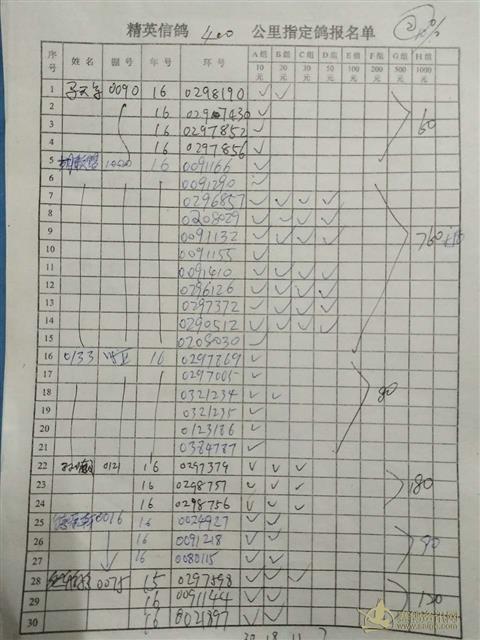 精英信鸽 400 公里指定鸽报名单 ②
序号 姓名 棚号 年号 环号 A组 10元 B组 20元 C组 30元 D组 50元 E组 100元 F组 200元 G组 500元 H组 1000元
1 0090 16 0298190 ✓ ✓
2 16 0297430 ✓
3 16 0297852 ✓ 60
4 16 0297856 ✓
5 16 0091166 ✓
6 0091290 ✓
7 0296857 ✓ ✓ ✓ ✓
8 0208029 ✓ ✓ ✓ ✓
9 0091132 ✓ ✓ ✓ ✓ 760
10 0091155 ✓
11 0091410 ✓ ✓ ✓ ✓
12 0296126 ✓ ✓ ✓ ✓
13 0297372 ✓ ✓ ✓ ✓
14 0290512 ✓ ✓ ✓ ✓
15 0208030 ✓
16 0133 16 0297869 ✓
17 0297005 ✓
18 0321234 ✓ ✓ 80
19 0321235 ✓
20 0123186 ✓
21 0384787 ✓
22 0121 16 0297379 ✓ ✓ ✓
23 16 0298757 ✓ ✓ ✓ 180
24 16 0298756 ✓ ✓ ✓
25 0016 16 0024927 ✓ ✓
26 16 0091218 ✓ ✓ 90
27 16 0080115 ✓ ✓
28 0075 15 0297598 ✓ ✓ ✓
29 16 0091144 ✓ ✓ 120
30 16 0021397 ✓ ✓
30 18 11 7